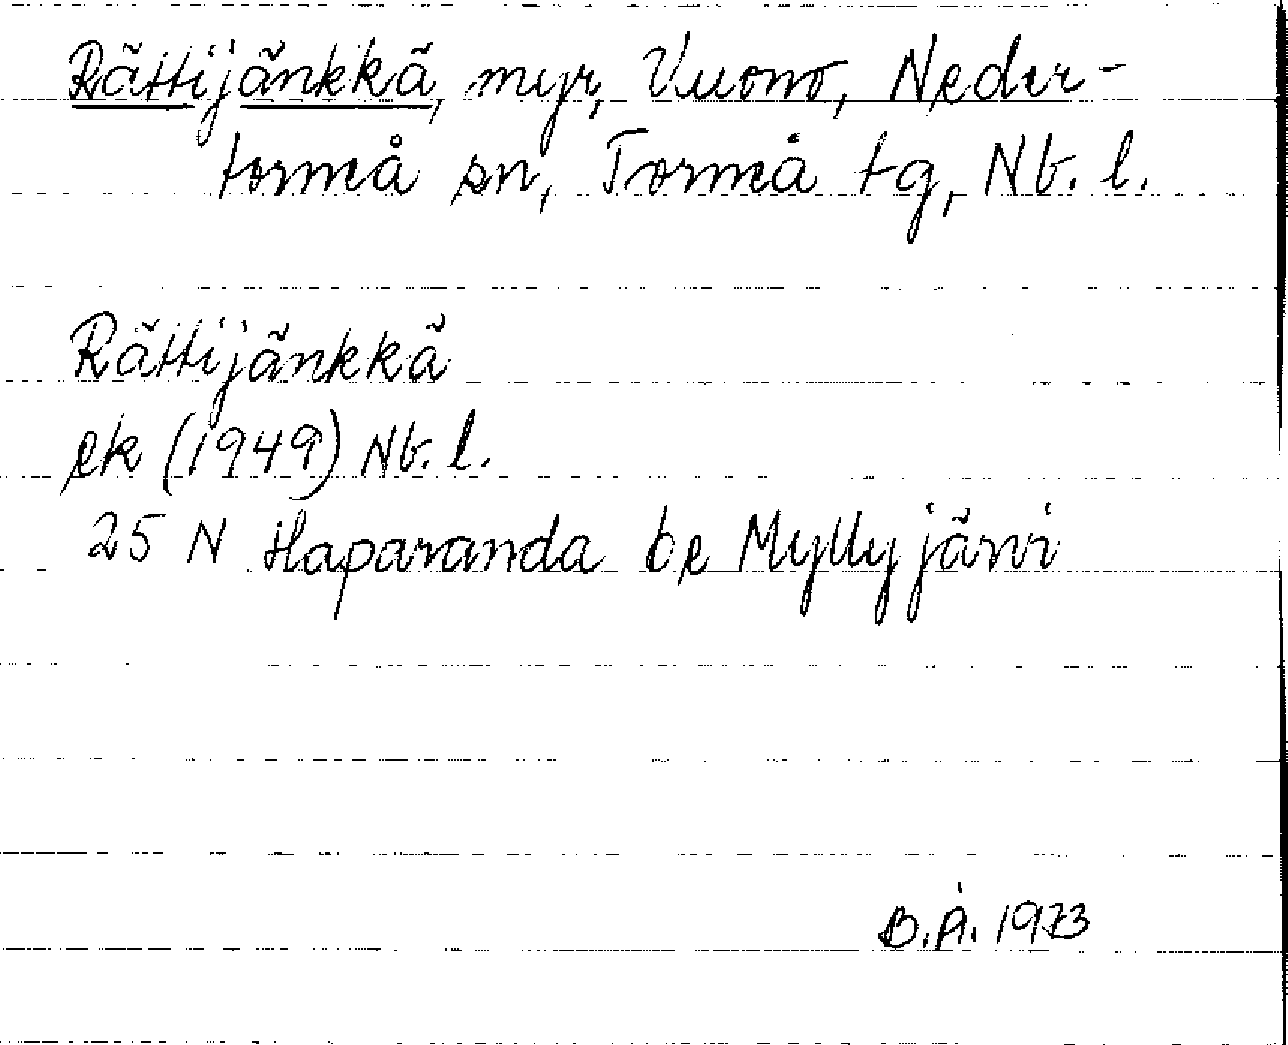 Rättijänkkä, myr, Vuono, Neder-
tormå sn, Tormå tg, Nb. l.
Rättijänkkä
ek (1949) Nb. l.
25 N Haparanda be Myllyjärvi
B.Å. 1973